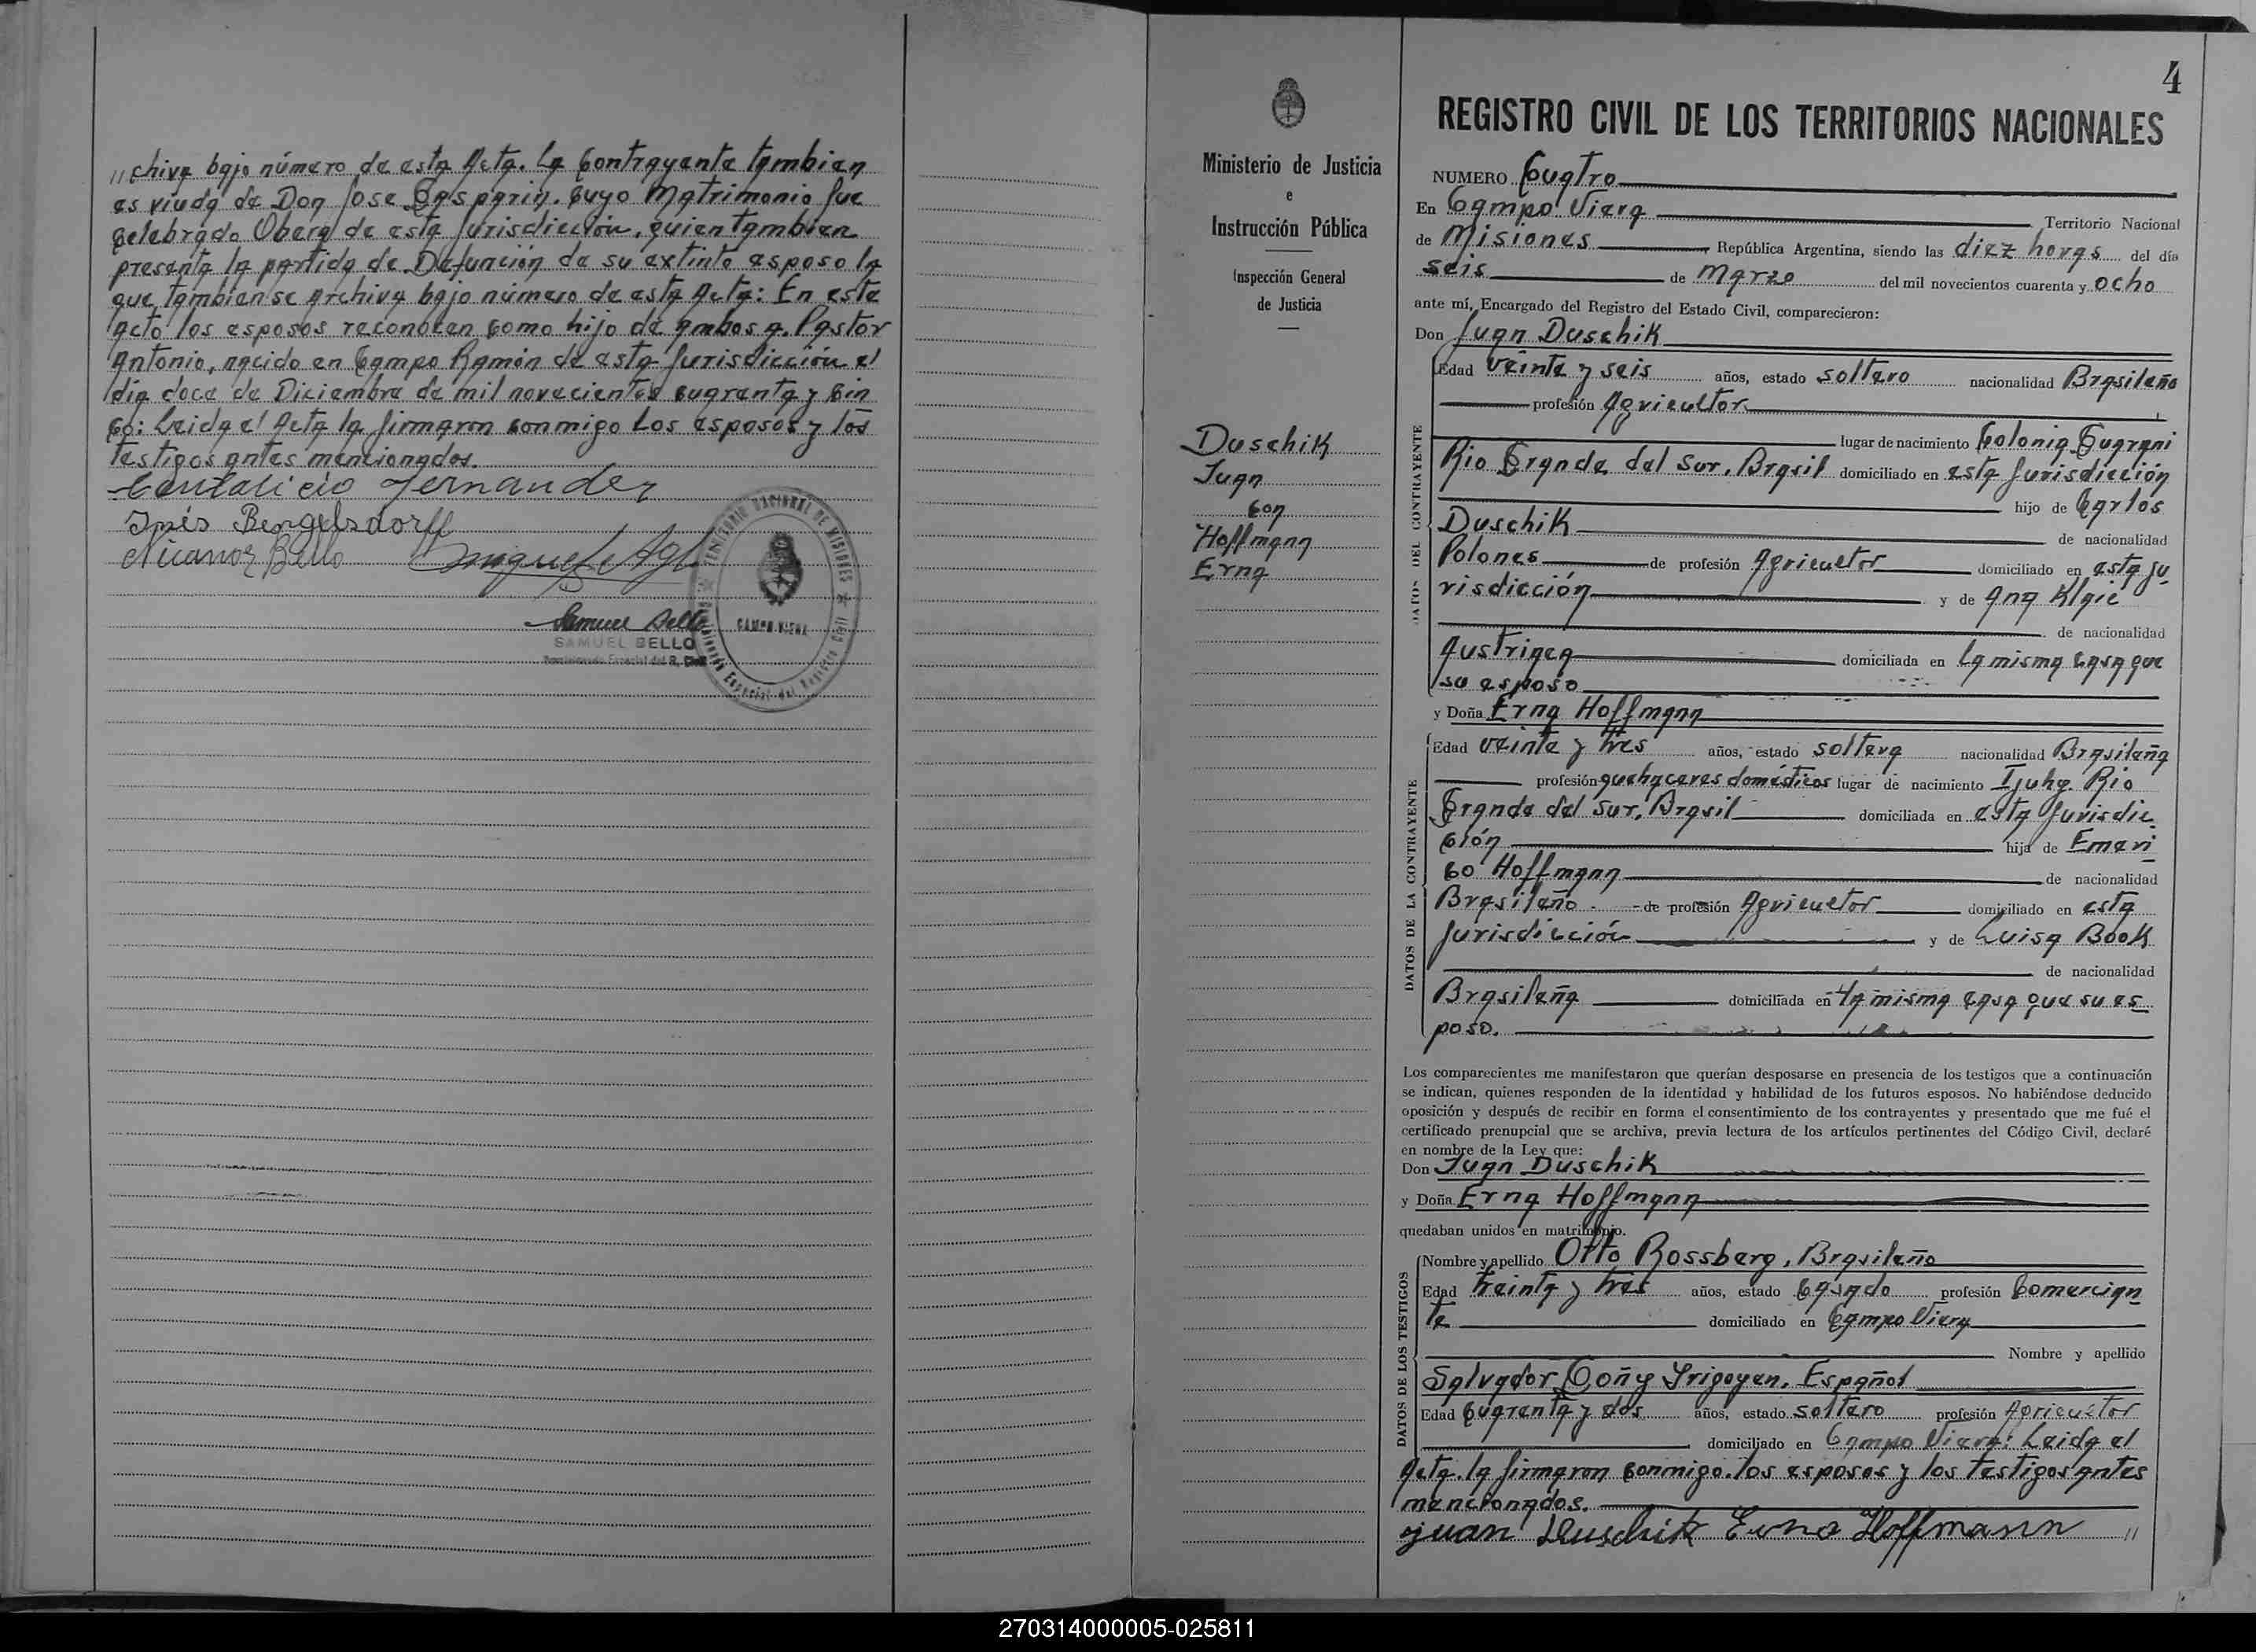 "chiva bajo número de esta Acta. La Contrayente tambien
es viuda de Don Jose Gasparin. Cuyo Matrimonio fue
Celebrado Obera de esta Jurisdicción, quien tambien
presenta la partida de Defunción de su extinto esposo la
que tambien se Archiva bajo número de esta Acta: En este
Acto los esposos reconocen como hijo de ambos a. Pastor
Antonio, nacido en Campo Ramón de esta Jurisdicción el
día doce de Diciembre de mil novecientos cuarenta y cin
co: Leida el Acta la firmaron conmigo los esposos y los
testigos antes mencionados.
Cantalicio Fernandez
Inés Bengelsdorff
Nicanor Bello
Samuel Bello
SAMUEL BELLO
TERRITORIO NACIONAL DE MISIONES
CAMPO VIERA
4
Ministerio de Justicia
e
Instrucción Pública
Inspección General
de Justicia
Duschik
Juan
con
Hoffmann
Erna
REGISTRO CIVIL DE LOS TERRITORIOS NACIONALES
NUMERO Cuatro
En Campo Viera Territorio Nacional
de Misiones República Argentina, siendo las diez horas del día
seis de Marzo del mil novecientos cuarenta y ocho
ante mí, Encargado del Registro del Estado Civil, comparecieron:
Don Juan Duschik
Edad veinte y seis años, estado soltero nacionalidad Brasileño
profesión Agricultor
lugar de nacimiento Colonia Guarani
Rio Grande del Sur, Brasil domiciliado en esta Jurisdicción
hijo de Carlos
Duschik de nacionalidad
Polones de profesión Agricultor domiciliado en esta Ju
risdicción y de Ana Klaic
de nacionalidad
Austriaca domiciliada en la misma casa que
su esposo
DATOS DEL CONTRAYENTE
y Doña Erna Hoffmann
Edad veinte y tres años, estado soltera nacionalidad Brasileña
profesión quehaceres domésticos lugar de nacimiento Ijuhy. Rio
Grande del Sur, Brasil domiciliada en esta Jurisdic
ción hija de Emeri
co Hoffmann de nacionalidad
Brasileño de profesión Agricultor domiciliado en esta
Jurisdicción y de Luisa Book
de nacionalidad
Brasileña domiciliada en la misma casa que su es
poso.
DATOS DE LA CONTRAYENTE
Los comparecientes me manifestaron que querían desposarse en presencia de los testigos que a continuación
se indican, quienes responden de la identidad y habilidad de los futuros esposos. No habiéndose deducido
oposición y después de recibir en forma el consentimiento de los contrayentes y presentado que me fué el
certificado prenupcial que se archiva, previa lectura de los artículos pertinentes del Código Civil, declaré
en nombre de la Ley que:
Don Juan Duschik
y Doña Erna Hoffmann
quedaban unidos en matrimonio.
Nombre y apellido Otto Rossberg, Brasileño
Edad treinta y tres años, estado Casado profesión Comercian
te domiciliado en Campo Viera
Nombre y apellido
Salvador Goñy Yrigoyen, Español
Edad cuarenta y dos años, estado soltero profesión Agricultor
domiciliado en Campo Viera: Leida el
Acta. la firmaron conmigo. los esposos y los testigos antes
mencionados.
DATOS DE LOS TESTIGOS
Juan Duschik Erna Hoffmann "
270314000005-025811